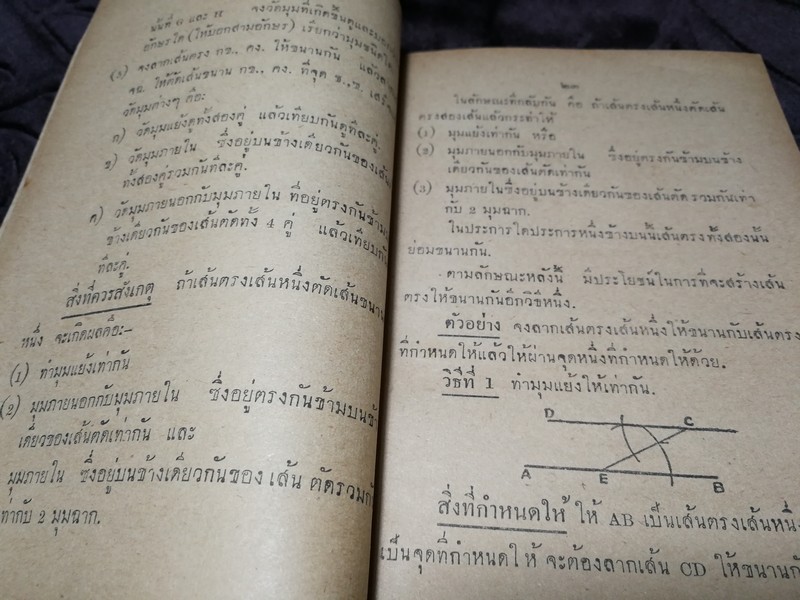 นั้นที่ G และ H จงวัดมุมที่เกิดขึ้นดูและบอก
อักษรใด (ให้บอกสามอักษร) เรียกว่ามุมชนิดใด
(๖) จงลากเส้นตรง กข, คง. ให้ขนานกัน แล้ว
จฉ. ให้ตัดเส้นขนาน กข, คง. ที่จุด
วัดมุมต่างๆ คือ:
ก) วัดมุมแย้งดูทั้งสองคู่ แล้วเทียบกันดูทีละคู่.
ข) วัดมุมภายใน ซึ่งอยู่บนข้างเดียวกันของเส้น
ทั้งสองคู่รวมกันทีละคู่.
ค) วัดมุมภายนอกกับมุมภายใน ที่อยู่ตรงกันข้าม
ข้างเดียวกันของเส้นตัดทั้ง 4 คู่ แล้วเทียบกัน
ทีละคู่.
สิ่งที่ควรสังเกตุ ถ้าเส้นตรงเส้นหนึ่งตัดเส้นขนาน
หนึ่ง จะเกิดผลคือ:-
(1) ทำมุมแย้งเท่ากัน
(2) มุมภายนอกกับมุมภายใน ซึ่งอยู่ตรงกันข้ามบนข้าง
เดียวของเส้นตัดเท่ากัน และ
มุมภายใน ซึ่งอยู่บนข้างเดียวกันของ เส้น ตัดรวมกัน
ท่ากับ 2 มุมฉาก.
๒๓
ในลักษณะที่กลับกัน คือ ถ้าเส้นตรงเส้นหนึ่งตัดเส้น
ตรงสองเส้นแล้วกระทำให้
(1) มุมแย้งเท่ากัน หรือ
(2) มุมภายนอกกับมุมภายใน ซึ่งอยู่ตรงกันข้ามบนข้าง
เดียวกันของเส้นตัดเท่ากัน
(3) มุมภายในซึ่งอยู่บนข้างเดียวกันของเส้นตัด รวมกันเท่า
กับ 2 มุมฉาก.
ในประการใดประการหนึ่งข้างบนนี้เส้นตรงทั้งสองนั้น
ย่อมขนานกัน.
ตามลักษณะหลังนี้ มีประโยชน์ในการที่จะสร้างเส้น
ตรงให้ขนานกันอีกวิธีหนึ่ง.
ตัวอย่าง จงลากเส้นตรงเส้นหนึ่งให้ขนานกับเส้นตรง
ที่กำหนดให้แล้วให้ผ่านจุดหนึ่งที่กำหนดให้ด้วย.
วิธีที่ 1 ทำมุมแย้งให้เท่ากัน.
D C
A E B
สิ่งที่กำหนดให้ ให้ AB เป็นเส้นตรงเส้นหนึ่ง
เป็นจุดที่กำหนดให้ จะต้องลากเส้น CD ให้ขนานกั